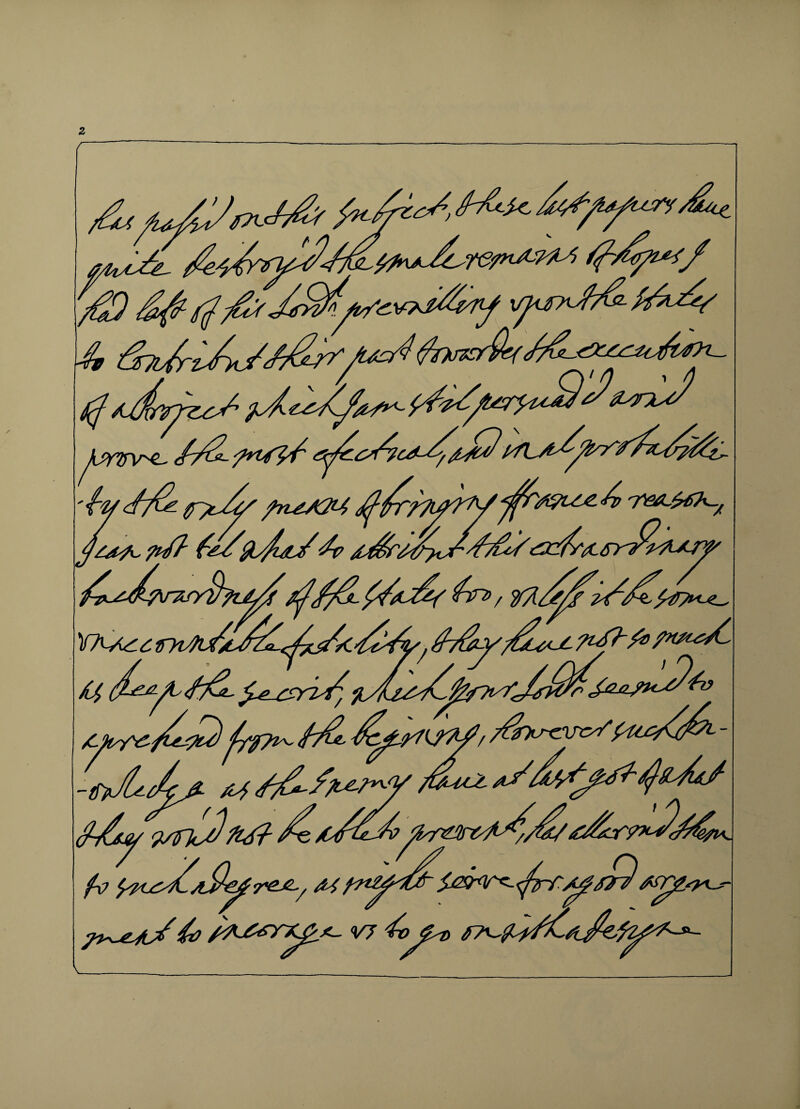 2
has pass'd in this subject, these last papers have
quite destroy'd the small remains of hopes I
had left of his Lordp prevailing upon the States
to contribute their part towards the execution
of a Project which from
prove the most effectual, and in all probabili-
-ty the only means of bringing France to reason,
I can not tell what to attribute this extraordinary
backwardness of the States too, unless it be some
they have not so much
as kept the secret, which your Lordp seemed to
apprehend from the beginning, however such
as the Enemy have at last got of what
they would not be able to prevent, has alarmed them
to such a degree, as might serve for a good argu-
ment to incourage us to go on with a design